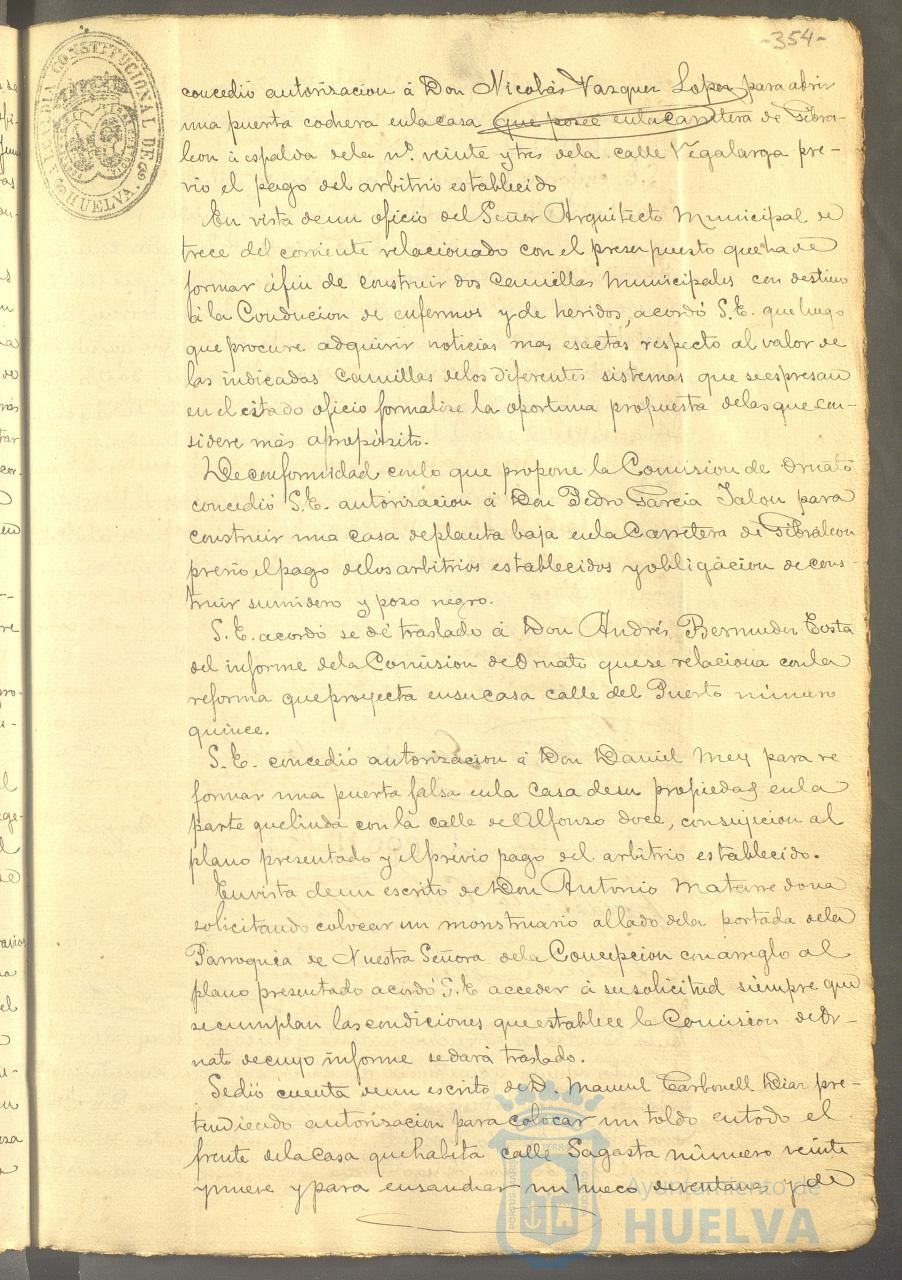 -354-
ALCALDIA CONSTITUCIONAL DE HUELVA.
concedió autorizacion á Don Nicolás Vazquez Lopez para abrir
una puerta cochera en la casa que posee en la Carretera de Gibra-
leon á espalda de la nº. veinte y tres de la calle Vegalarga pre-
vio el pago del arbitrio establecido
En vista de un oficio del Señor Arquitecto Municipal de
trece del corriente relacionado con el presupuesto que ha de
formar áfin de construir dos camillas municipales con destino
á la Conducion de enfermos y de heridos, acordó S.E. que luego
que procure adquirir noticias mas esactas respecto al valor de
las indicadas camillas de los diferentes sistemas que se espresan
en el citado oficio formalize la oportuna propuesta de las que con-
sidere más apropósito.
De conformidad con lo que propone la Comision de Ornato
concedió S.E. autorizacion á Don Pedro Garcia Jalon para
construir una casa de planta baja en la Carretera de Gibraleon
previo el pago de los arbitrios establecidos y obligacion de cons-
truir sumidero y pozo negro.
S.E. acordó se dé traslado á Don Andrés Bermudez Costa
del informe de la Comision de Ornato que se relaciona con la
reforma que proyecta en su casa calle del Puerto número
quince.
S.E. concedió autorizacion á Don Daniel Mey para re-
formar una puerta falsa en la casa de su propiedad en la
parte que linda con la calle de Alfonso doce, con sujicion al
plano presentado y el prévio pago del arbitrio establecido.
En vista de un escrito de Don Antonio Matarredona
solicitando colocar un monstruario al lado de la portada de la
Parroquia de Nuestra Señora de la Concepcion con arreglo al
plano presentado acordó S.E acceder á su solicitud siempre que
se cumplan las condiciones que establece la Comision de Or-
nato de cuyo informe se dará traslado.
Se dió cuenta de un escrito de D. Manuel Carbonell Diaz pre-
tendiendo autorizacion para colocar un toldo en todo el
frente de la casa que habita calle Sagasta número veinte
y nueve y para ensanchar un hueco de ventana y de
Ayuntamiento de
HUELVA